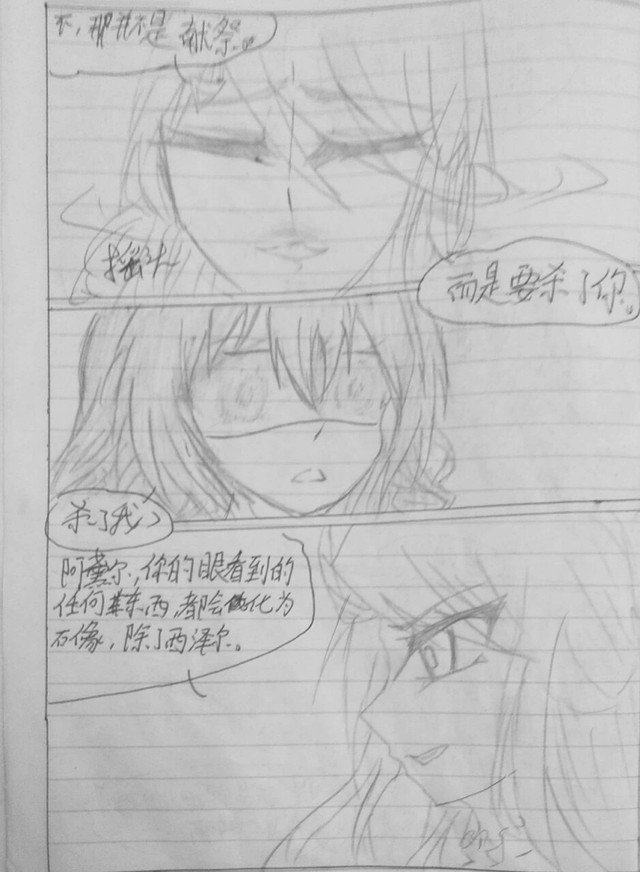 不，那并不是献祭。
摇头
而是要杀了你。
杀了我？
阿爾，你的眼看到的
任何东西，都会化为
石像，除了西泽尔。